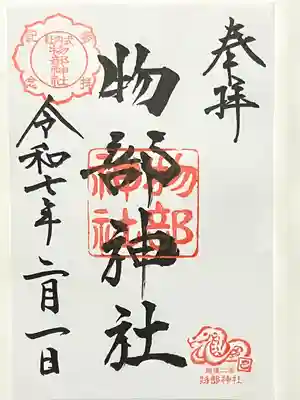 奉拝
物部神社
物部神社
令和七年二月一日
参拝記念
物部神社
越後二宮
物部神社